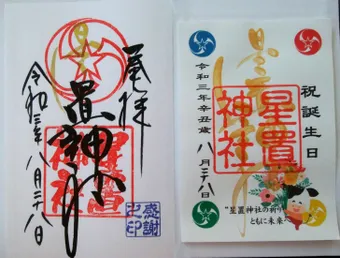 奉拝
星置神社
星置神社
令和三年八月二十八日
感謝
之印
祝誕生日
星置神社
星置神社
令和三年辛丑歳 八月二十八日
"星置神社の祈り
ともに未来へ"